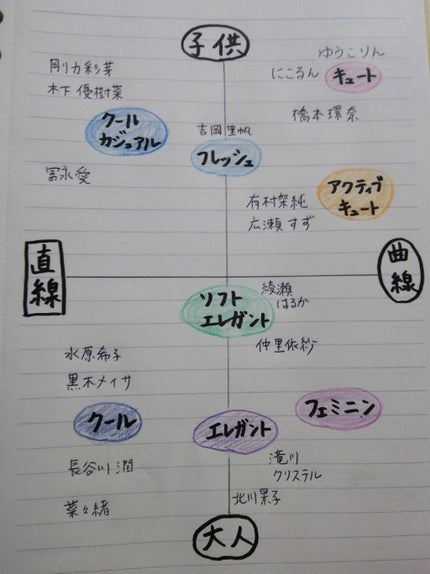 子供
ゆうこりん
剛力彩芽
にこるん
キュート
木下優樹菜
橋本環奈
クール
カジュアル
吉岡里帆
フレッシュ
冨永愛
アクティブ
キュート
有村架純
広瀬すず
直線
曲線
ソフト
エレガント
綾瀬
はるか
仲里依紗
水原希子
黒木メイサ
クール
エレガント
フェミニン
長谷川潤
滝川
クリステル
菜々緒
北川景子
大人